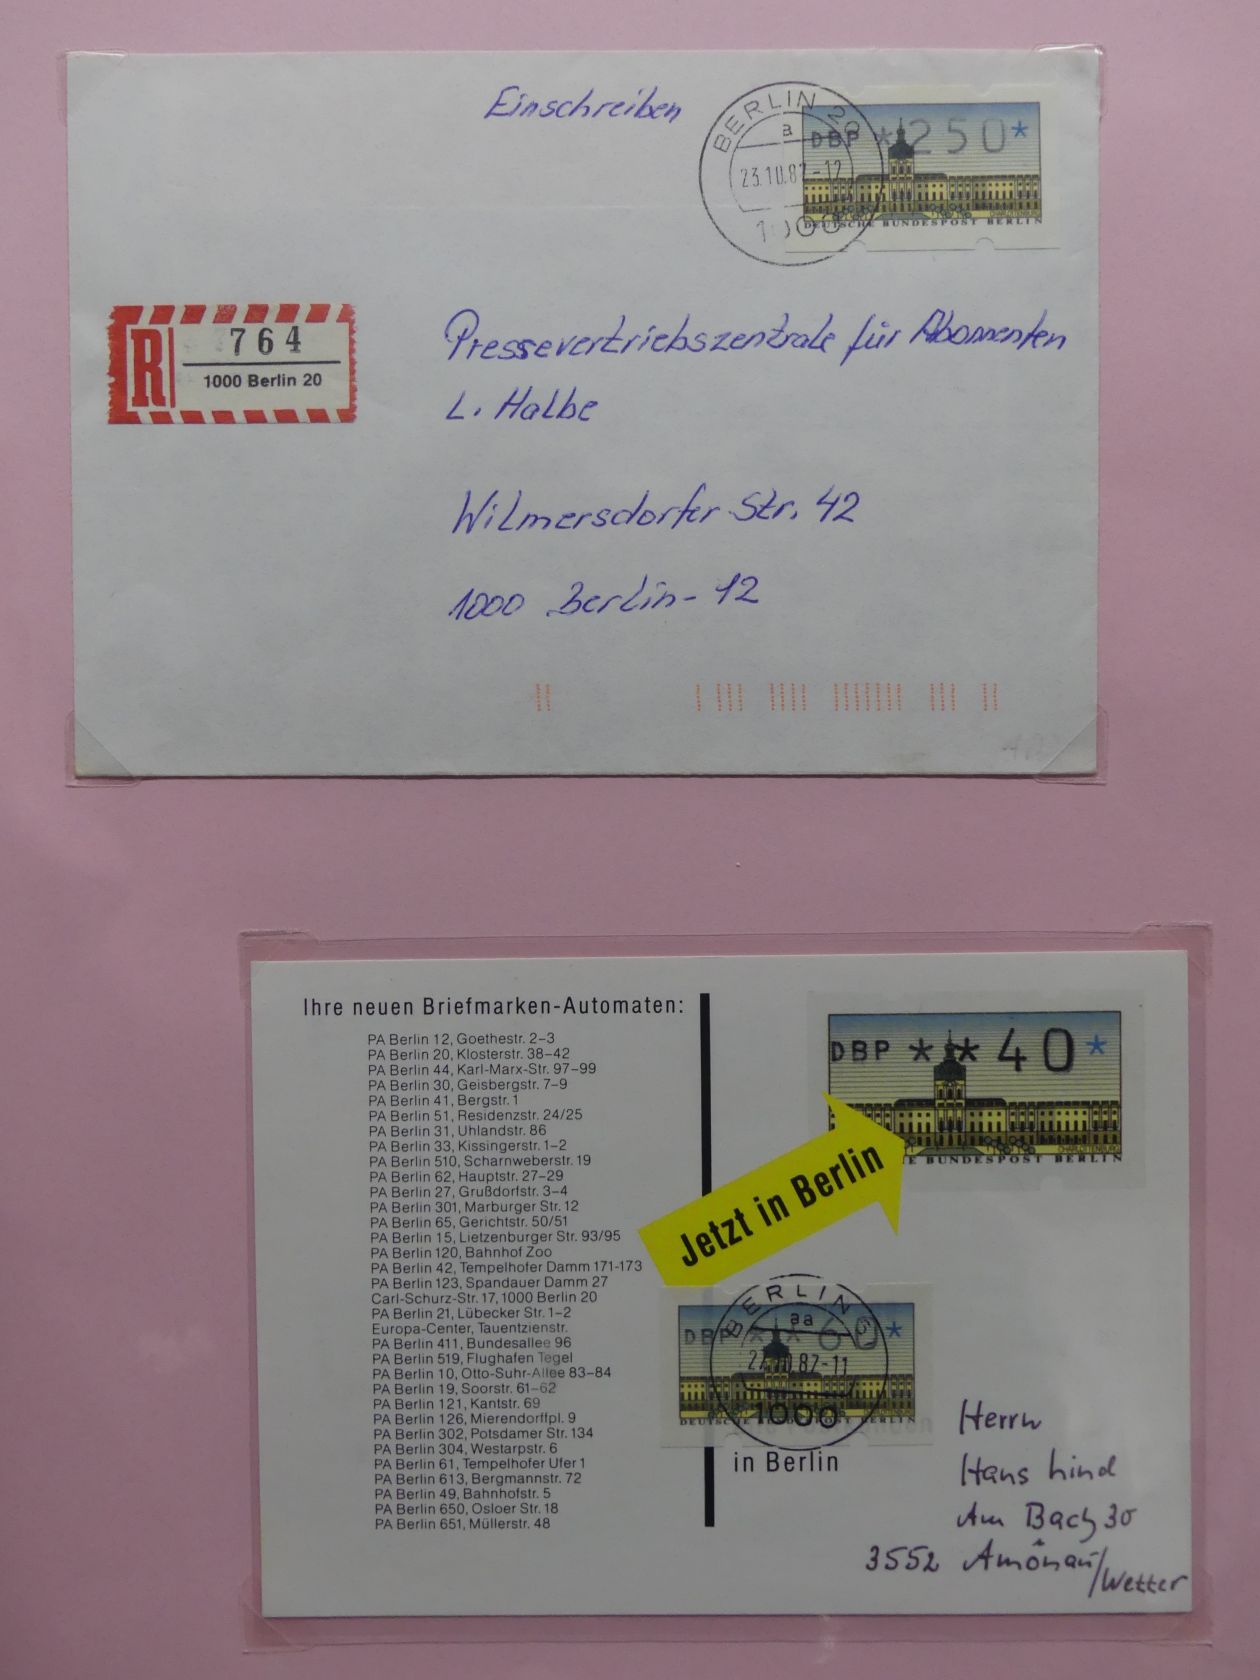 Einschreiben
BERLIN 20
a
23.10.87-12
1000
DBP *250*
CHARLOTTENBURG
DEUTSCHE BUNDESPOST BERLIN
R
764
1000 Berlin 20
Pressevertriebszentrale für Abonnenten
L. Halbe
Wilmersdorfer Str. 42
1000 Berlin-12
Ihre neuen Briefmarken-Automaten:
PA Berlin 12, Goethestr. 2–3
PA Berlin 20, Klosterstr. 38–42
PA Berlin 44, Karl-Marx-Str. 97–99
PA Berlin 30, Geisbergstr. 7–9
PA Berlin 41, Bergstr. 1
PA Berlin 51, Residenzstr. 24/25
PA Berlin 31, Uhlandstr. 86
PA Berlin 33, Kissingerstr. 1–2
PA Berlin 510, Scharnweberstr. 19
PA Berlin 62, Hauptstr. 27–29
PA Berlin 27, Grußdorfstr. 3–4
PA Berlin 301, Marburger Str. 12
PA Berlin 65, Gerichtstr. 50/51
PA Berlin 15, Lietzenburger Str. 93/95
PA Berlin 120, Bahnhof Zoo
PA Berlin 42, Tempelhofer Damm 171-173
PA Berlin 123, Spandauer Damm 27
Carl-Schurz-Str. 17, 1000 Berlin 20
PA Berlin 21, Lübecker Str. 1–2
Europa-Center, Tauentzienstr.
PA Berlin 411, Bundesallee 96
PA Berlin 519, Flughafen Tegel
PA Berlin 10, Otto-Suhr-Allee 83–84
PA Berlin 19, Soorstr. 61–62
PA Berlin 121, Kantstr. 69
PA Berlin 126, Mierendorffpl. 9
PA Berlin 302, Potsdamer Str. 134
PA Berlin 304, Westarpstr. 6
PA Berlin 61, Tempelhofer Ufer 1
PA Berlin 613, Bergmannstr. 72
PA Berlin 49, Bahnhofstr. 5
PA Berlin 650, Osloer Str. 18
PA Berlin 651, Müllerstr. 48
DBP **40*
CHARLOTTENBURG
E BUNDESPOST BERLIN
Jetzt in Berlin
BERLIN
aa
10.87-11
1000
DBP **60*
DEUTSCHE BUNDESPOST BERLIN
in Berlin
Herrn
Hans Lind
Am Bach 30
3552 Amönau/Wetter